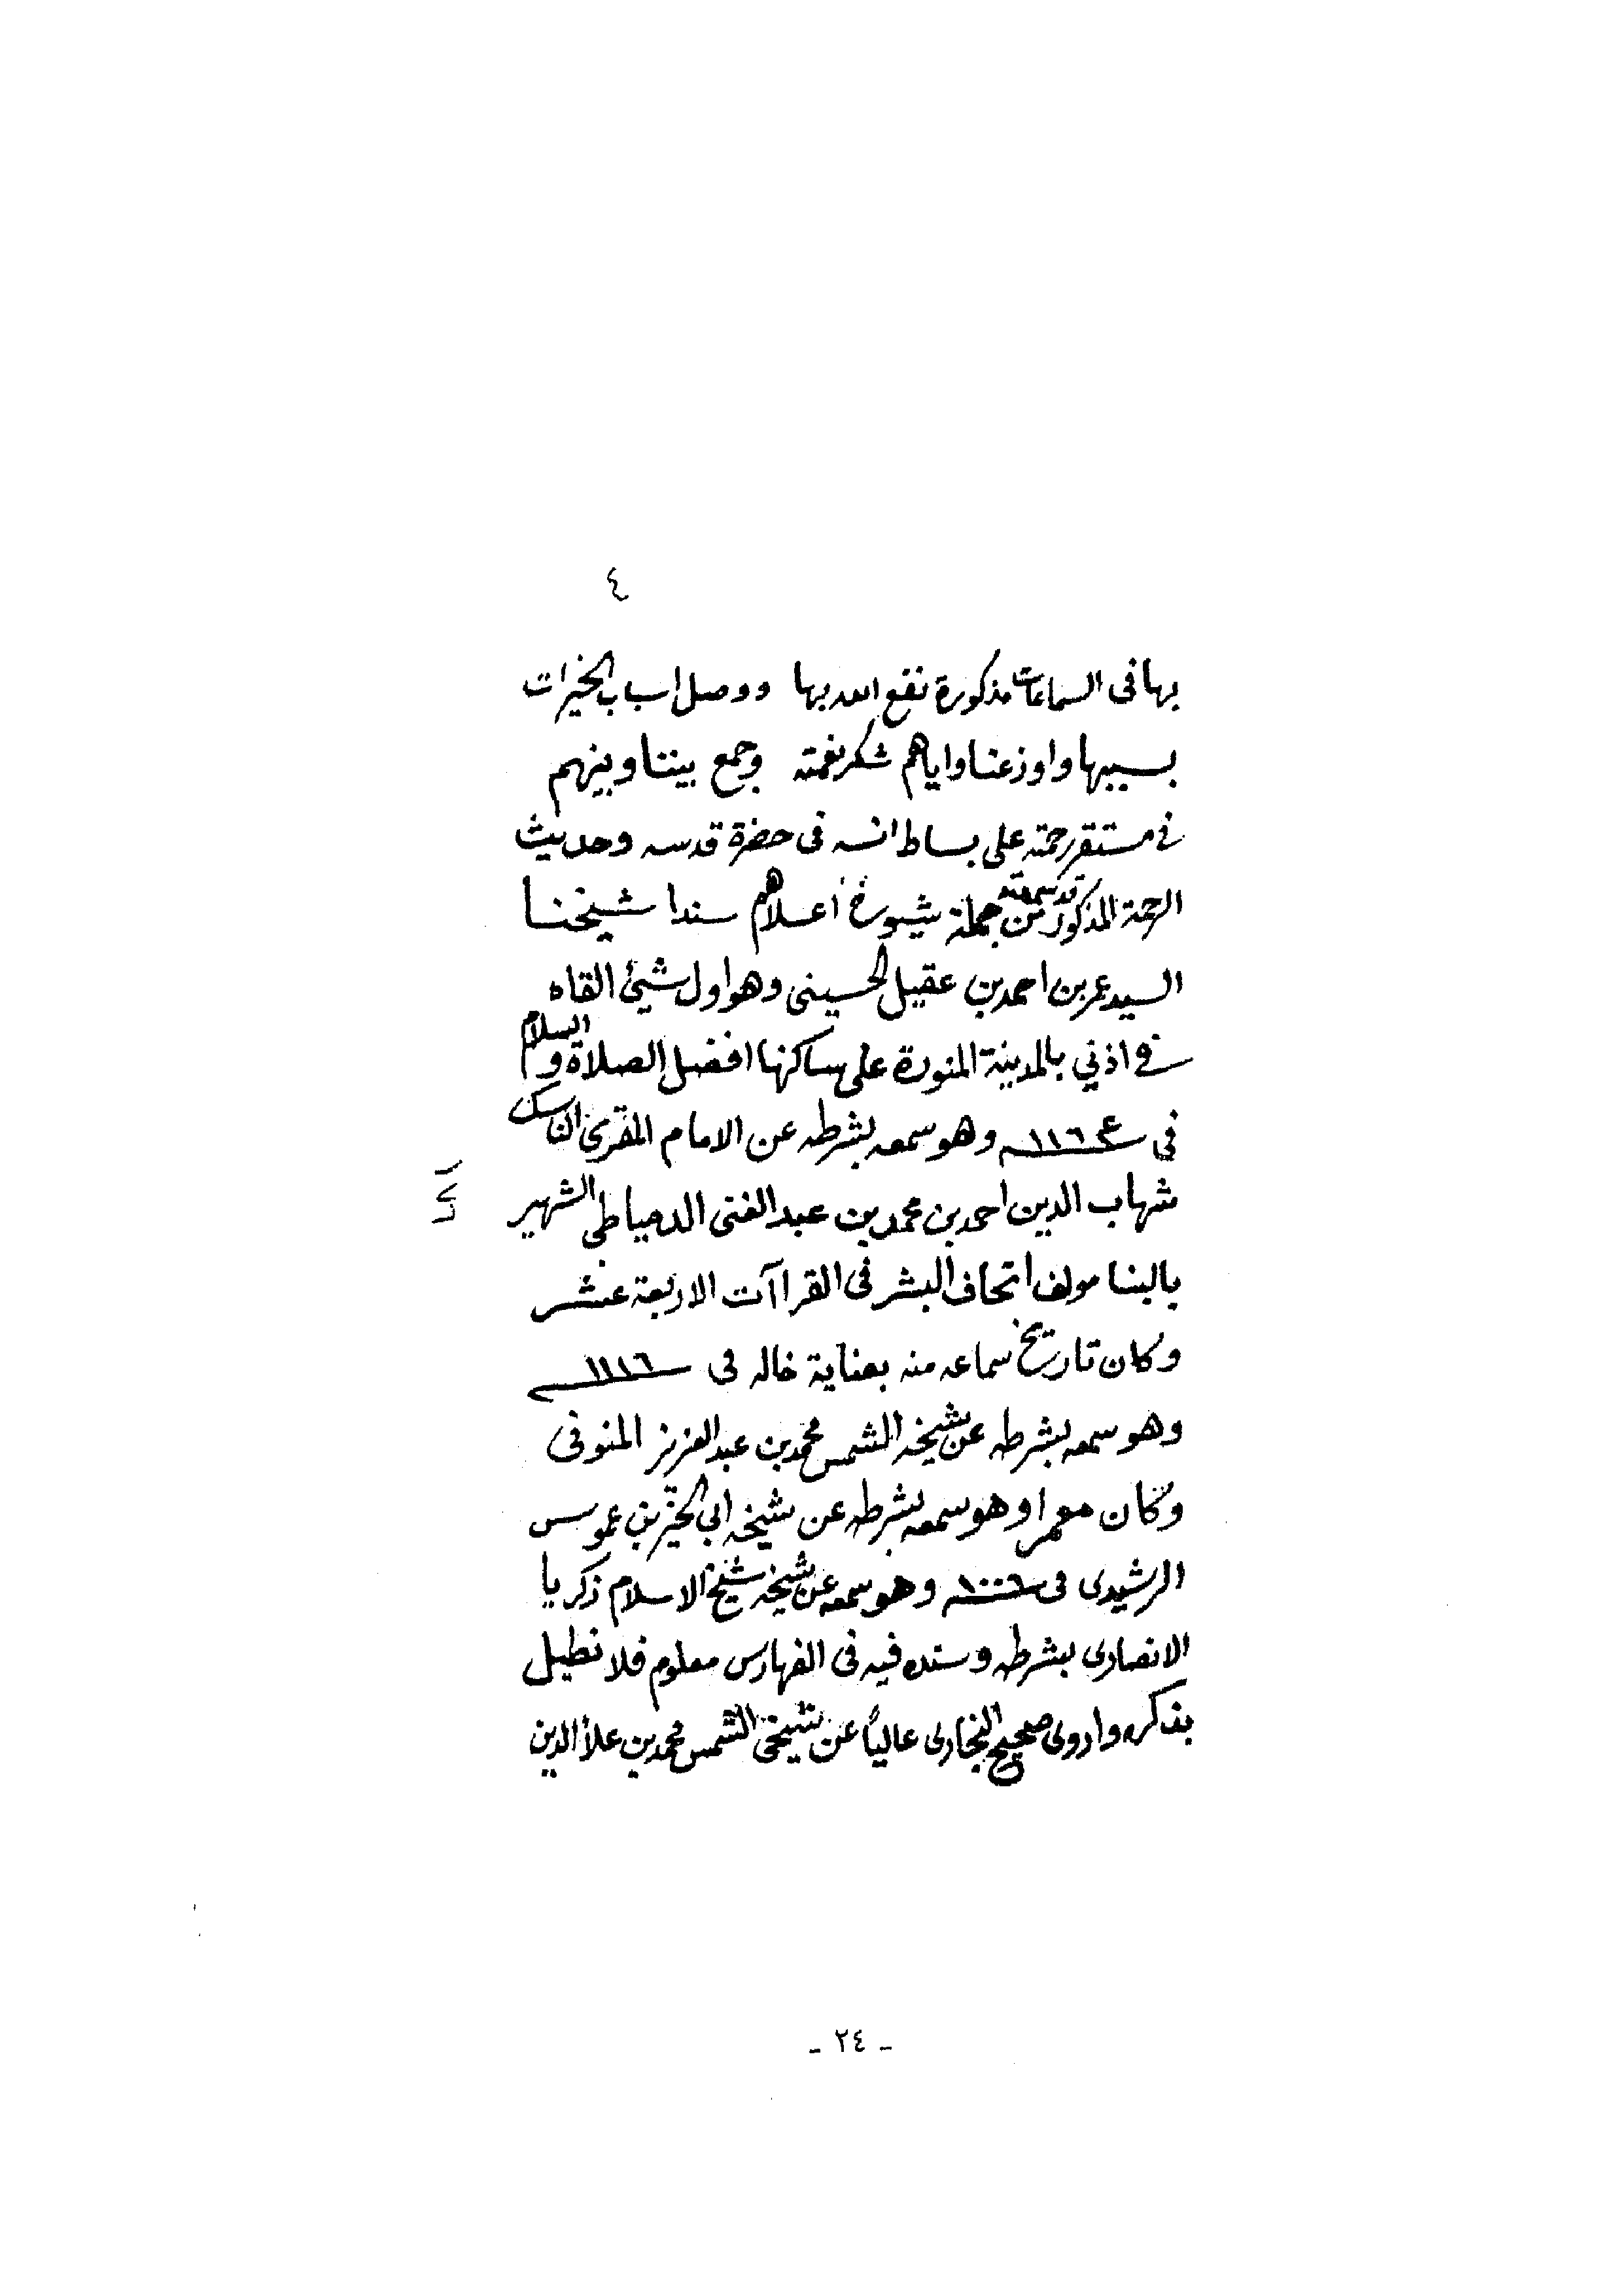 ٤
بها فى السماعات مذكورة نفع الله بها ووصل اسباب الخيرات
بسببها واوزعنا واياهم شكر نعمته وجمع بيننا وبينهم
فى مستقر رحمته على بساط انسه فى حضرة قدسه وحديث
الرحمة المذكور قد سمعته من جملة شيوخ أعلاهم سندا شيخنا
السيد عمر بن احمد بن عقيل الحسينى وهو اول شيئ القاه
فى اذني بالمدينة المنورة على ساكنها افضل الصلاة والسلام
فى ١١٦٤ وهو سمعه بشرطه عن الامام المقرئ الناسك
شهاب الدين احمد بن محمد بن عبد الغنى الدمياطى الشهير
بالبنا مولف اتحاف البشر فى القراآت الاربعة عشر
وكان تاريخ سماعه منه بعناية خاله فى ١١١٦
وهو سمعه بشرطه عن شيخه الشمس محمد بن عبد العزيز المنوفى
وكان معمرا وهو سمعه بشرطه عن شيخه ابي الخير بن عموس
الرشيدى فى ١٠٠٦ وهو سمعه عن شيخه شيخ الاسلام زكريا
الانصارى بشرطه وسنده فيه فى الفهارس معلوم فلا نطيل
بذكره واروى صحيح البخارى عالياً عن شيخى الشمس محمد بن علأ الدين
- ٢٤ -